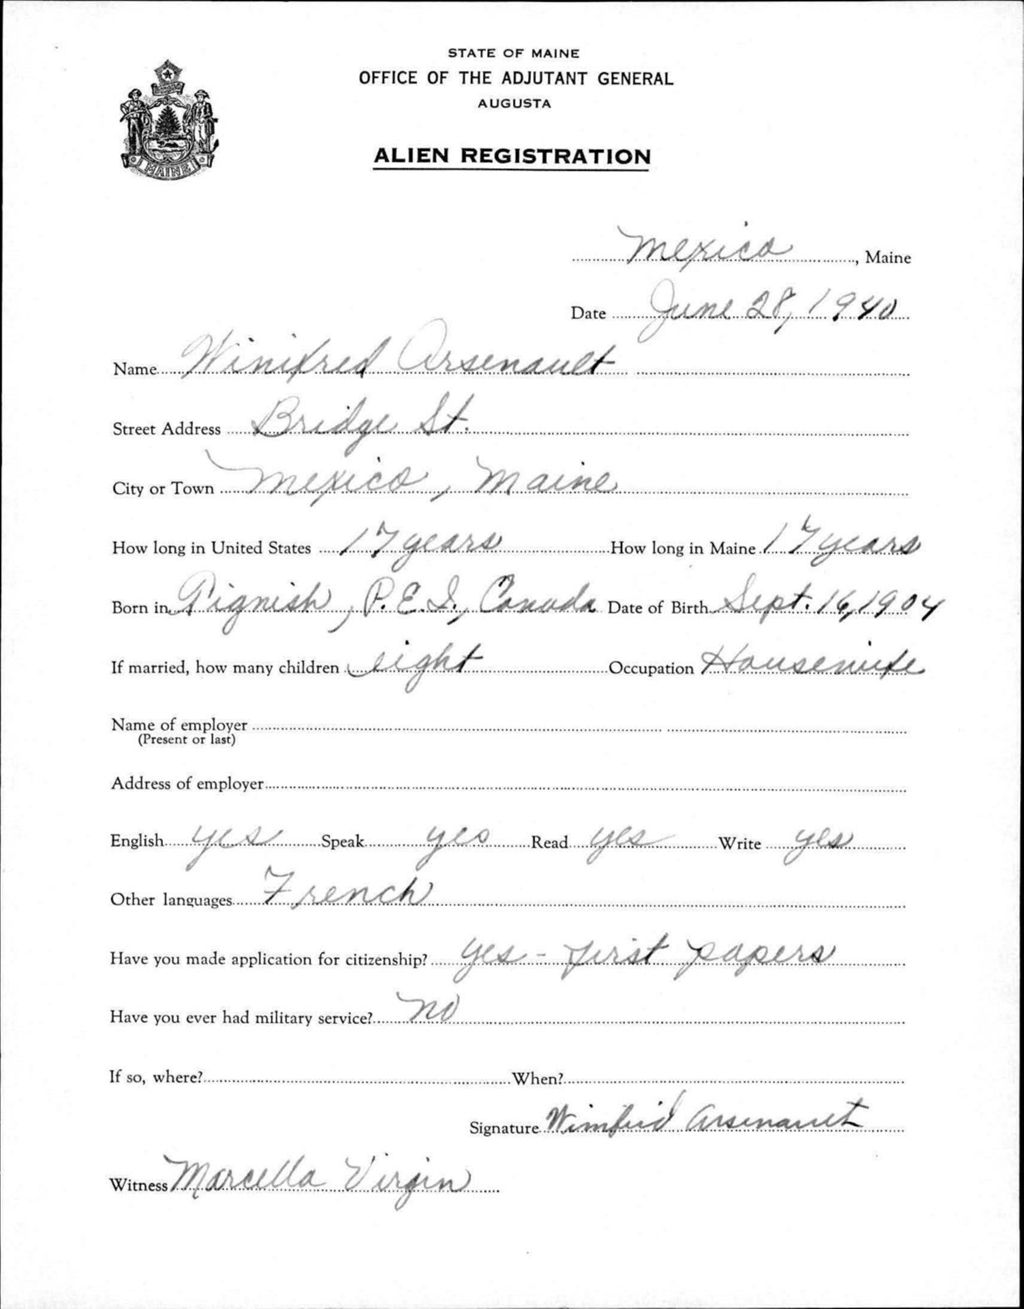 STATE OF MAINE
OFFICE OF THE ADJUTANT GENERAL
AUGUSTA
ALIEN REGISTRATION
MAINE
Mexico, Maine
Date June 28, 1940
Name Winifred Arsenault
Street Address Bridge St.
City or Town Mexico, Maine
How long in United States 17 years How long in Maine 17 years
Born in Tignish, P.E.I., Canada Date of Birth Sept. 16, 1904
If married, how many children eight Occupation Housewife
Name of employer
(Present or last)
Address of employer
English yes Speak yes Read yes Write yes
Other languages French
Have you made application for citizenship? yes - first papers
Have you ever had military service? no
If so, where? When?
Signature Winifred Arsenault
Witness Marcella Virgin